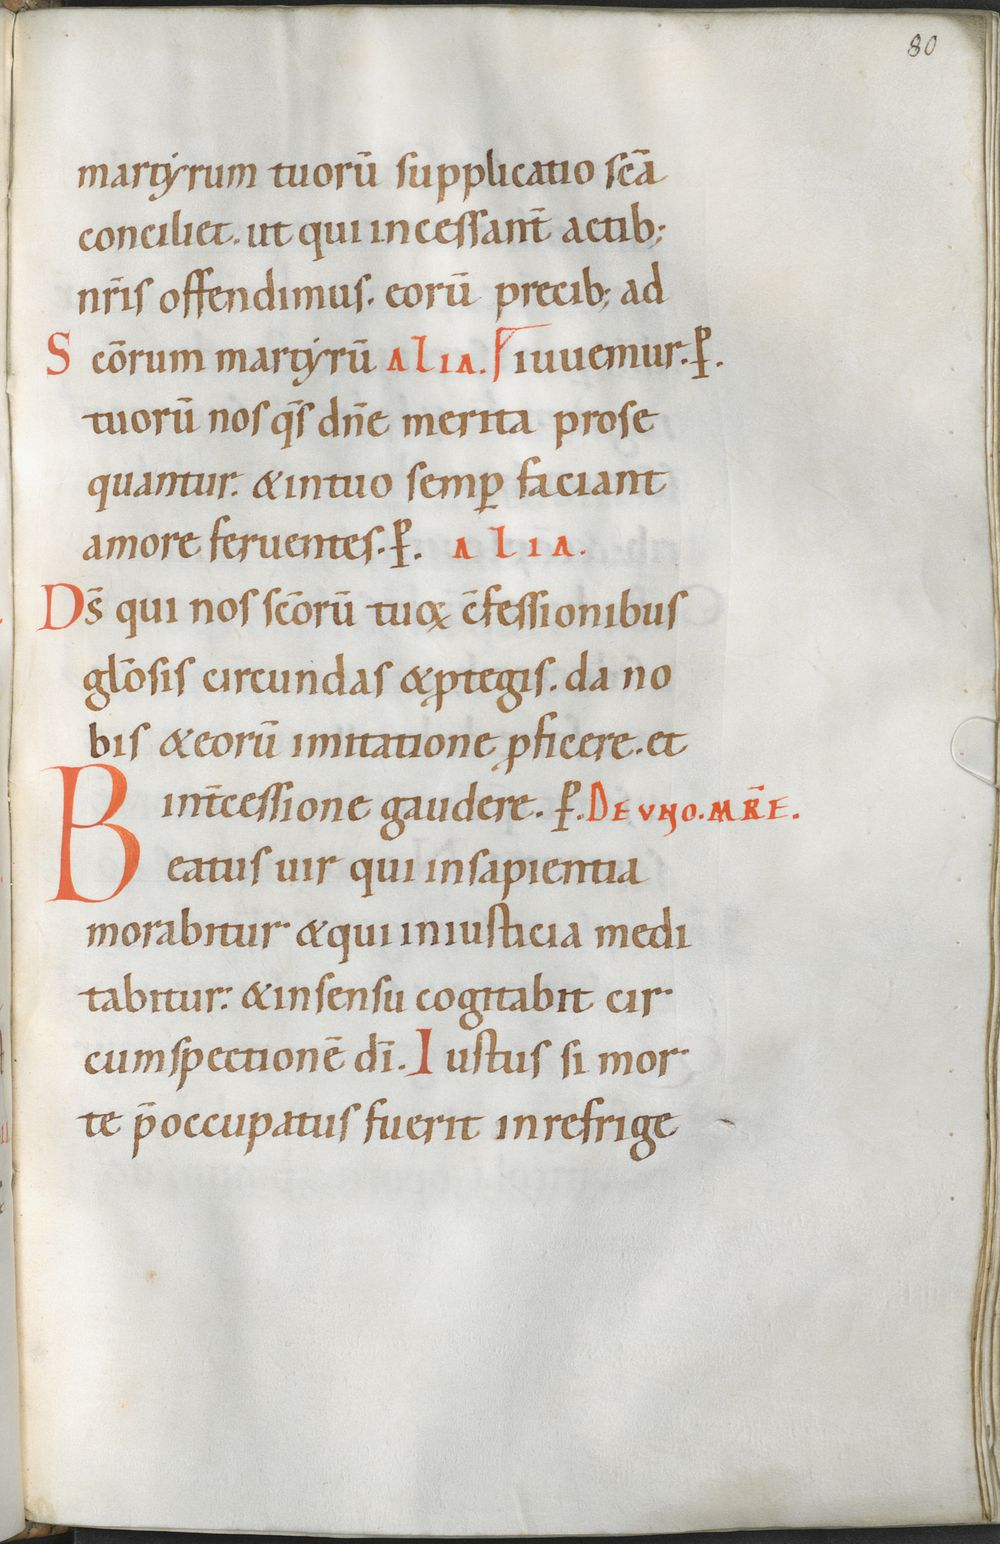 80
martyrum tuorū supplicatio scā
conciliet. ut qui incessant̄ actib;
nr̄is offendimus. eorū precib; ad
Scōrum martyrū ALIA. iuuemur. P̄.
tuorū nos qs̄ dn̄e merita prose
quantur. & intuo semꝑ faciant
amore feruentes. P̄. ALIA.
Ds̄ qui nos scōrū tuoꝝ c̄fessionibus
glōsis circundas & ꝓtegis. da no
bis & eorū imitatione ꝓficere. et
int̄cessione gaudere. P̄. DE VNO. MR̄E.
Beatus uir qui insapientia
morabitur & qui iniusticia medi
tabitur: & insensu cogitabit cir
cumspectionē dī. Iustus si mor
te p̄occupatus fuerit inrefrige